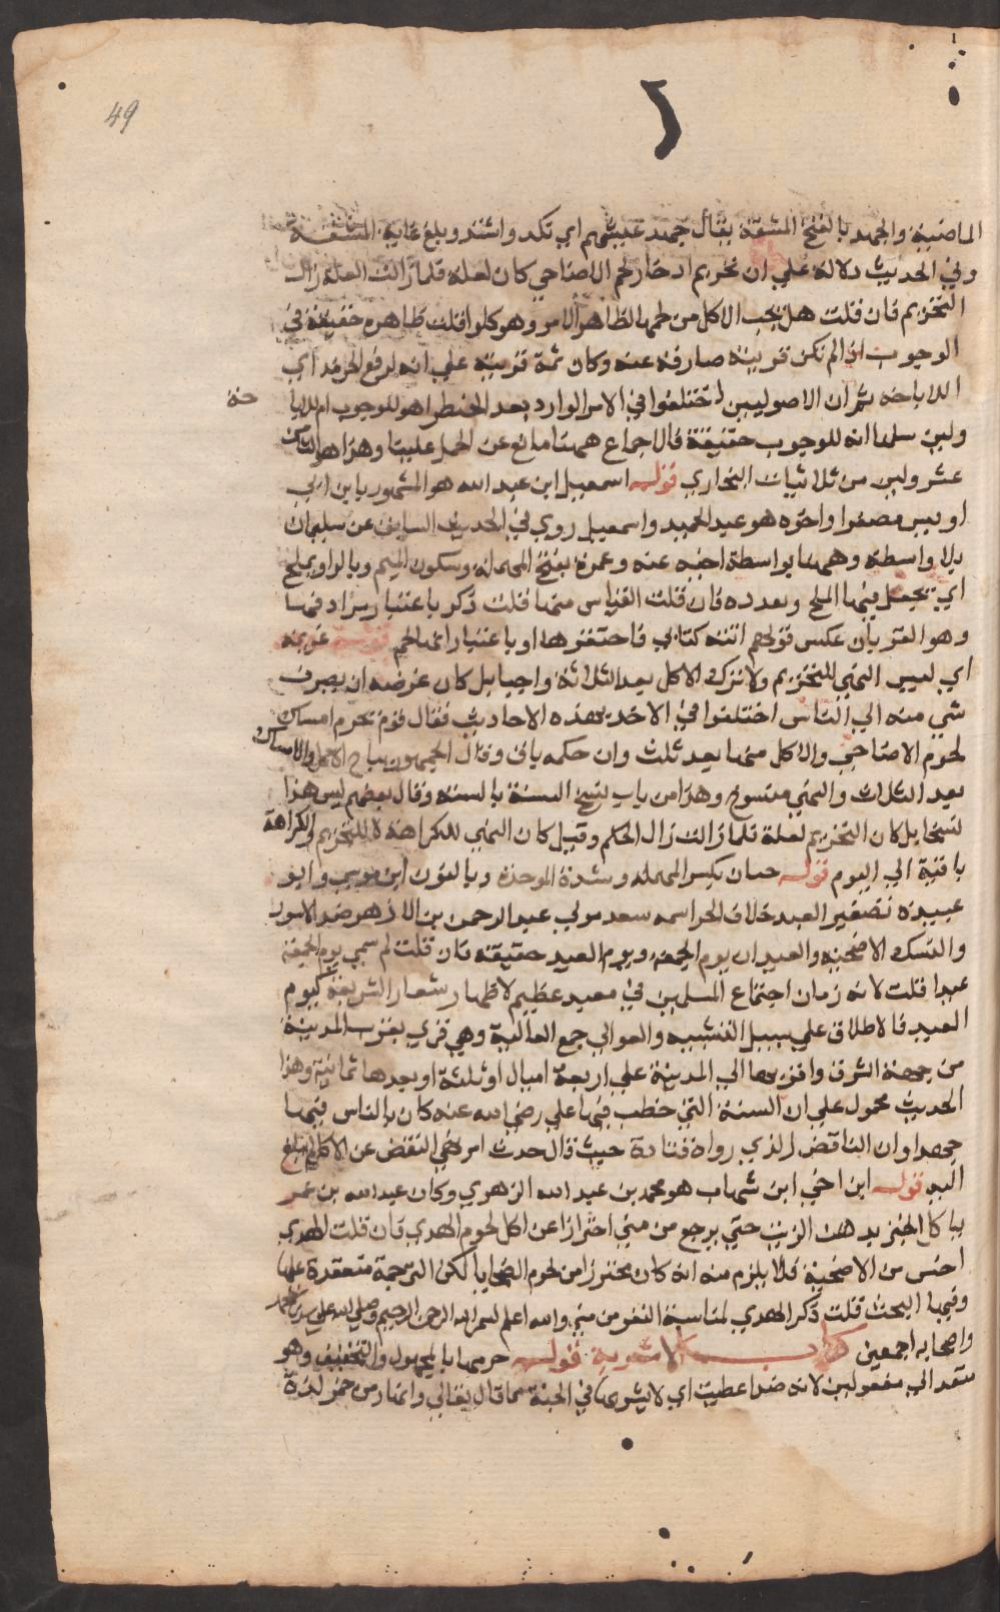 49
الماضية والجهد بالفتح المشقة يقال جهد عيشهم اي نكد واشتد وبلغ غاية المشقة
وفي الحديث دلالة علي ان تحريم ادخار لحم الاضاحي كان لعلة فلما زالت العلة زال
التحريم فان قلت هل يجب الاكل من لحمها لظاهر الامر وهو كلوا قلت ظاهره حقيقة في
الوجوب اذا لم تكن قرينة صارفة عنه وكان ثمة قرينة علي انه لرفع الحرمة اي
للاباحة ثم ان الاصوليين اختلفوا في الامر الوارد بعد الحظر اهو للوجوب ام للابا
حة
ولين سلمنا انه للوجوب حقيقة فالاجماع ههنا مانع عن الحمل عليها وهذا هو الثامن
عشر ولين من ثلاثيات البخاري قوله اسمعيل ابن عبد الله هو المشهور بابن ابي
اويس مصغرا واخوه هو عبد الحميد واسمعيل روي في الحديث السابق عن سليمان
بلا واسطة وههنا بواسطة اخيه عنه وعمرة بفتح المهملة وسكون الميم وبالراو يملح
اي يجعل فيها الملح ونقدده فان قلت القياس منها قلت ذكر باعتبار
وهو القربان عكس قولهم اتته كتابي فاحتقرها او باعتبار انها لحم قوله عزيمة
اي ليس النهي للتحريم ولا ترك الاكل بعد الثلاثة واجبا بل كان غرضه ان يصرف
شي منه الي الناس اختلفوا في الاخذ بهذه الاحاديث فقال قوم تحرم امساك
لحوم الاضاحي والاكل منها بعد ثلث وان حكمه باق وقال الجمهور يباح الاكل والامساك
بعد الثلاث والنهي منسوخ وهذا من باب نسخ السنة بالسنة وقال بعضهم ليس هذا
نسخا بل كان التحريم لعلة فلما زالت زال الحكم وقيل كان النهي للكراهة لا للتحريم والكراهة
باقية الي اليوم قوله حبان بكسر المهملة وشدة الموحدة وبالنون ابن موسي وابو
عبيدة تصغير العبد خلاف الحر اسمه سعد مولي عبد الرحمن بن الازهر ضد الاسود
والنسك الاضحية والعيدان يوم الجمعة ويوم العيد حقيقة فان قلت لم سمي يوم الجمعة
عيدا قلت لانه زمان اجتماع المسلمين في معبد عظيم لاظهار شعار الشريعة كيوم
العيد فالاطلاق علي سبيل التشبيه والعوالي جمع العالية وهي قري بقرب المدينة
من جهة الشرق واقربها الي المدينة علي اربعة اميال او ثلثة وابعدها ثمانية وهذا
الحديث محمول علي ان السنة التي خطب فيها علي رضي الله عنه كان بالناس فيها
جهدا وان الناقض الذي رواه قتادة حيث قال حدث امر في النقض عن الاكل
اليه قوله ابن اخي ابن شهاب هو محمد بن عبد الله الزهري وكان عبد الله بن عمر
ياكل الخبز بدهن الزيت حتي يرجع من مني احترازا عن اكل لحوم الهدي فان قلت الهدي
اخص من الاضحية فلا يلزم منه انه كان محترزا من لحوم الضحايا لكن الترجمة منعقدة عليها
وفيها البحث قلت ذكر الهدي لمناسبة النفر من مني والله اعلم بسم الله الرحمن الرحيم وصلي الله علي سيدنا محمد
واصحابه اجمعين كتاب الاشربة قوله حرمها بالمجهول والتخفيف وهو
متعد الي مفعولين لانه ضد اعطيت اي لا يشربها في الجنة مما قال تعالي وانهار من خمر لذة